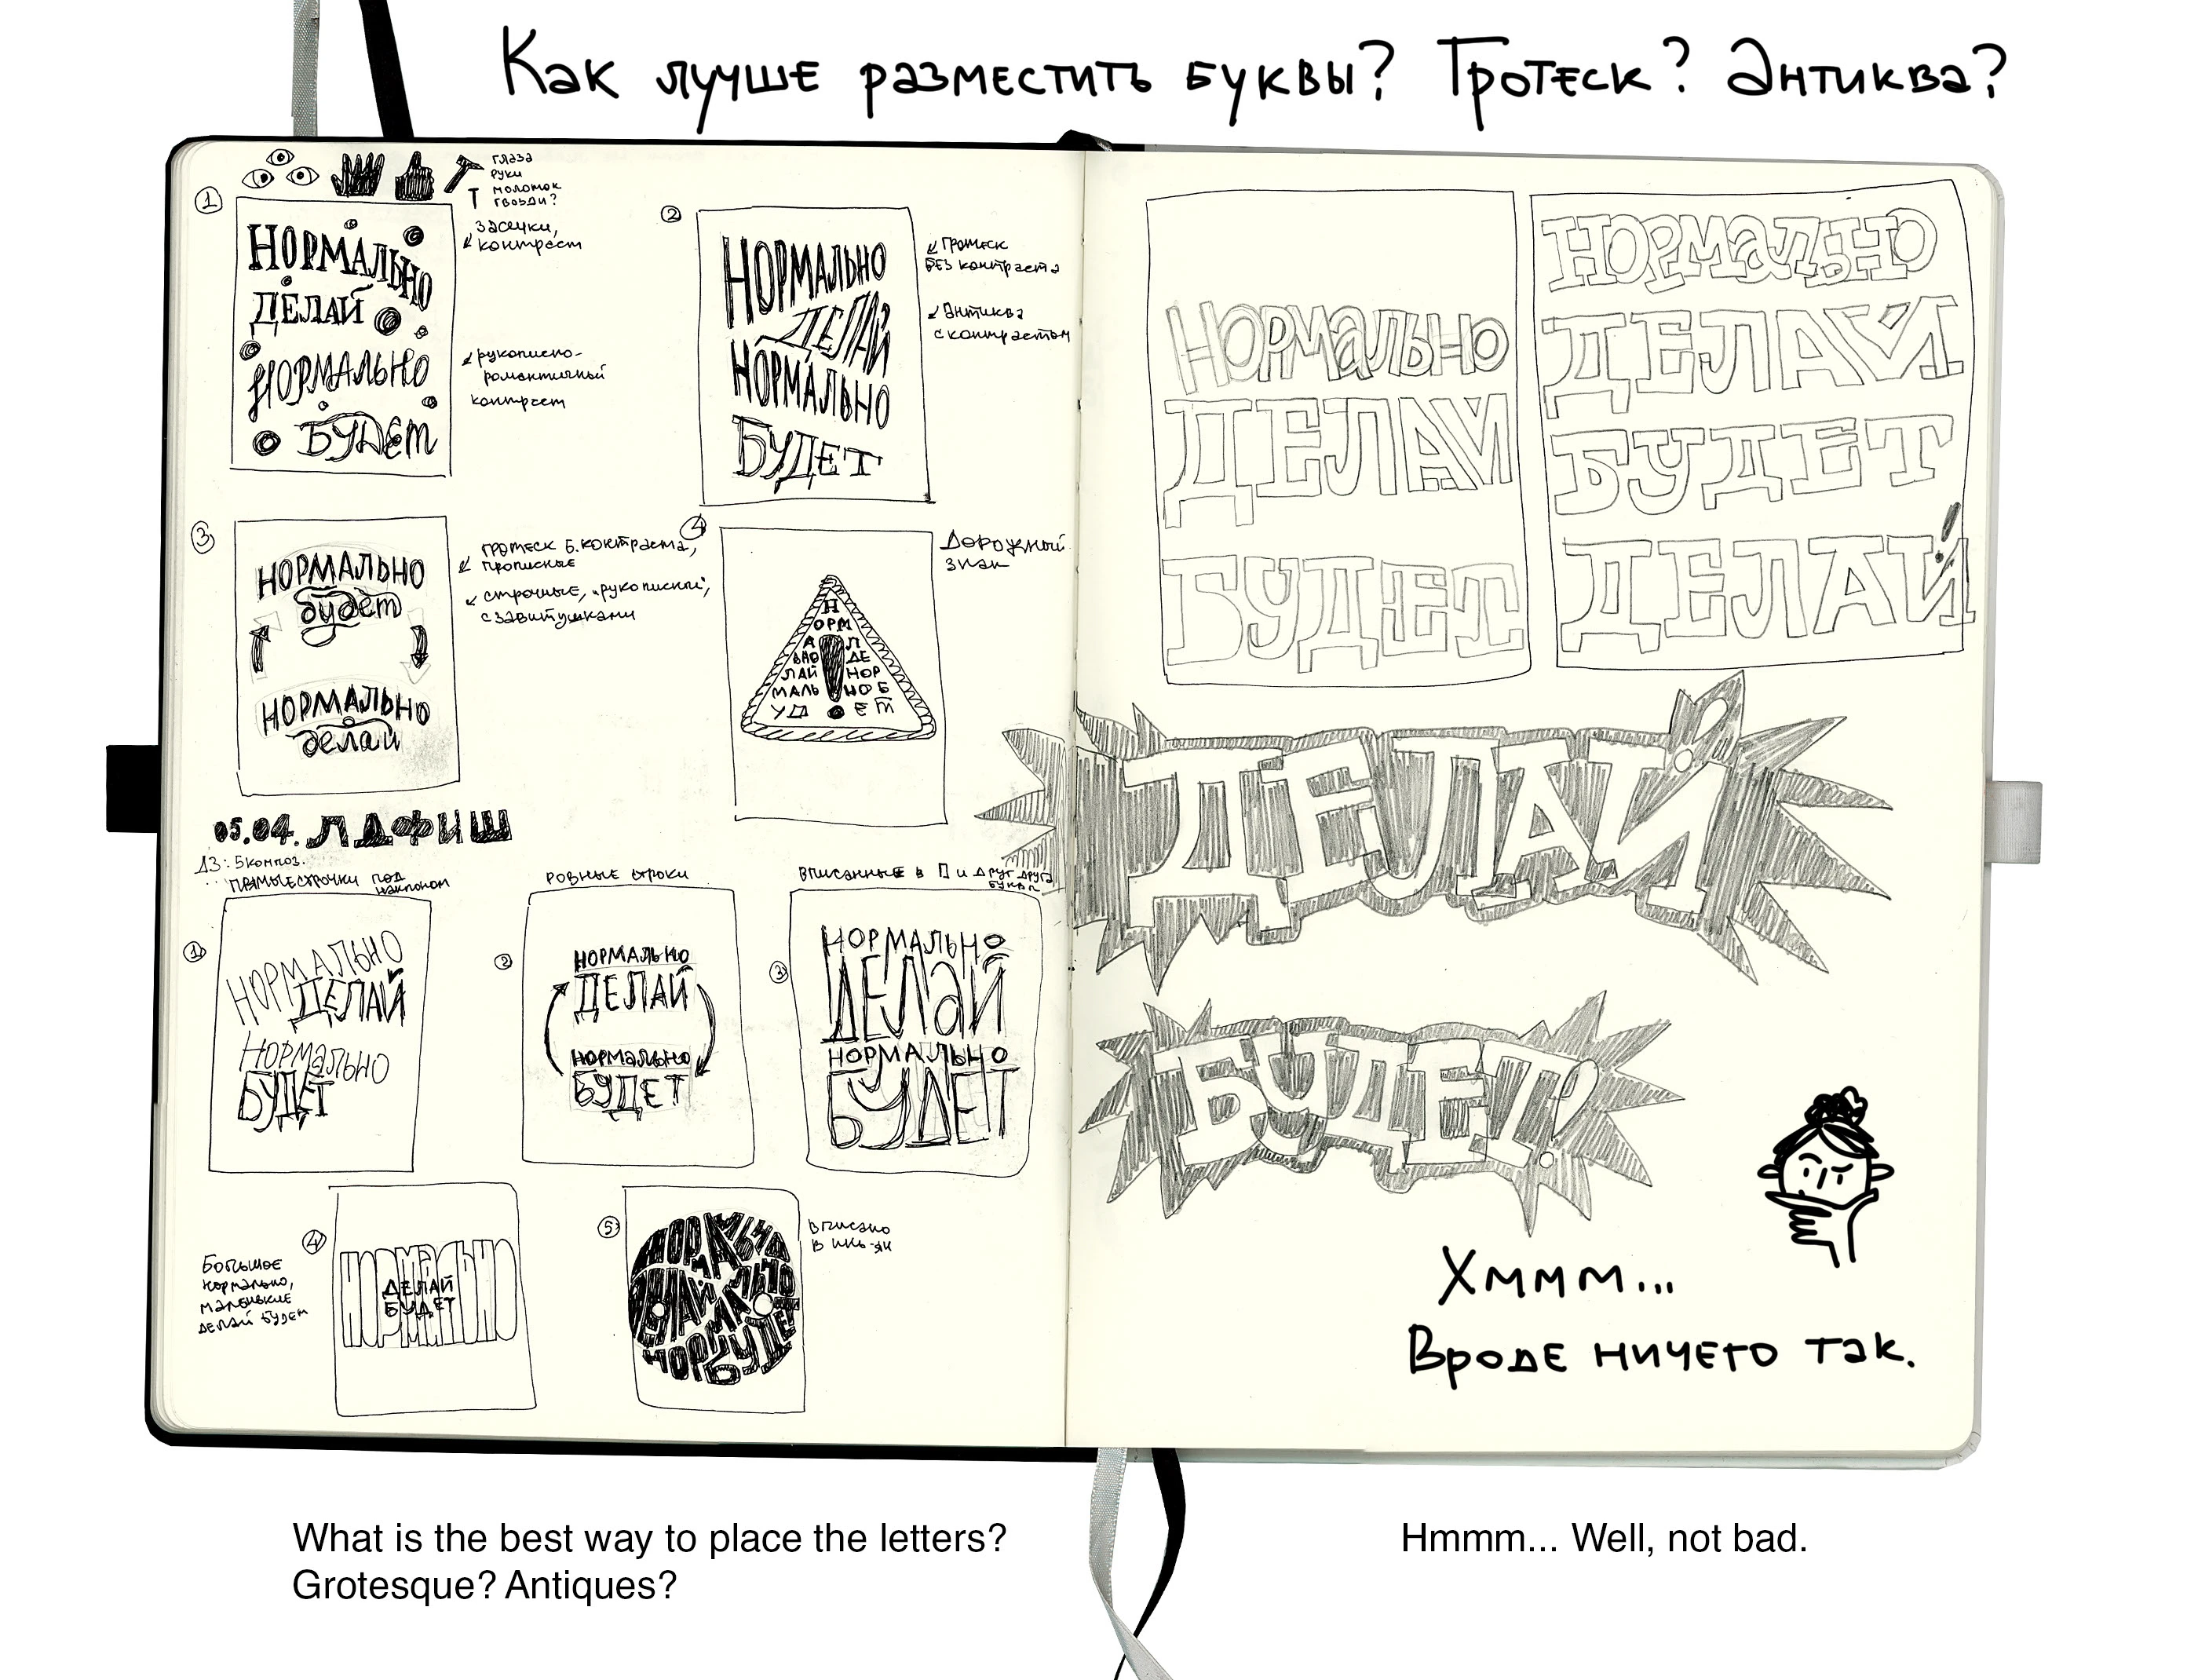 Как лучше разместить буквы? Гротеск? Антиква?
глаза
руки
молоток
гвозди?
1
НОРМАЛЬНО
ДЕЛАЙ
НОРМАЛЬНО
БУДЕТ
засечки,
контраст
рукописно-
романтичный
контраст
2
НОРМАЛЬНО
ДЕЛАЙ
НОРМАЛЬНО
БУДЕТ
гротеск
без контраста
Антиква
с контрастом
3
НОРМАЛЬНО
будет
НОРМАЛЬНО
делай
гротеск б. контраста,
прописные
строчные, "рукописный",
с завитушками
4
Дорожный
знак
Н
ОРМ
А Л
ЬНО ДЕ
ЛАЙ НОР
МАЛЬ НОБ
УД ЕТ
05.04. ЛДФИШ
ДЗ: 5 композ.
прямые строчки под
наклоном
1
НОРМАЛЬНО
ДЕЛАЙ
НОРМАЛЬНО
БУДЕТ
ровные строки
2
НОРМАЛЬНО
ДЕЛАЙ
НОРМАЛЬНО
БУДЕТ
вписанные в П и друг друга
буквы
3
НОРМАЛЬНО
ДЕЛАЙ
НОРМАЛЬНО
БУДЕТ
Большое
нормально,
маленькие
делай будет
4
НОРМАЛЬНО
ДЕЛАЙ
БУДЕТ
5
НОРМАЛЬНО
ДЕЛАЙ
НОРМАЛЬНО
БУДЕТ
вписано
в инь-ян
НОРМАЛЬНО
ДЕЛАЙ
БУДЕТ
НОРМАЛЬНО
ДЕЛАЙ
БУДЕТ
ДЕЛАЙ!
ДЕЛАЙ
БУДЕТ!
Хммм...
Вроде ничего так.
What is the best way to place the letters?
Grotesque? Antiques?
Hmmm... Well, not bad.